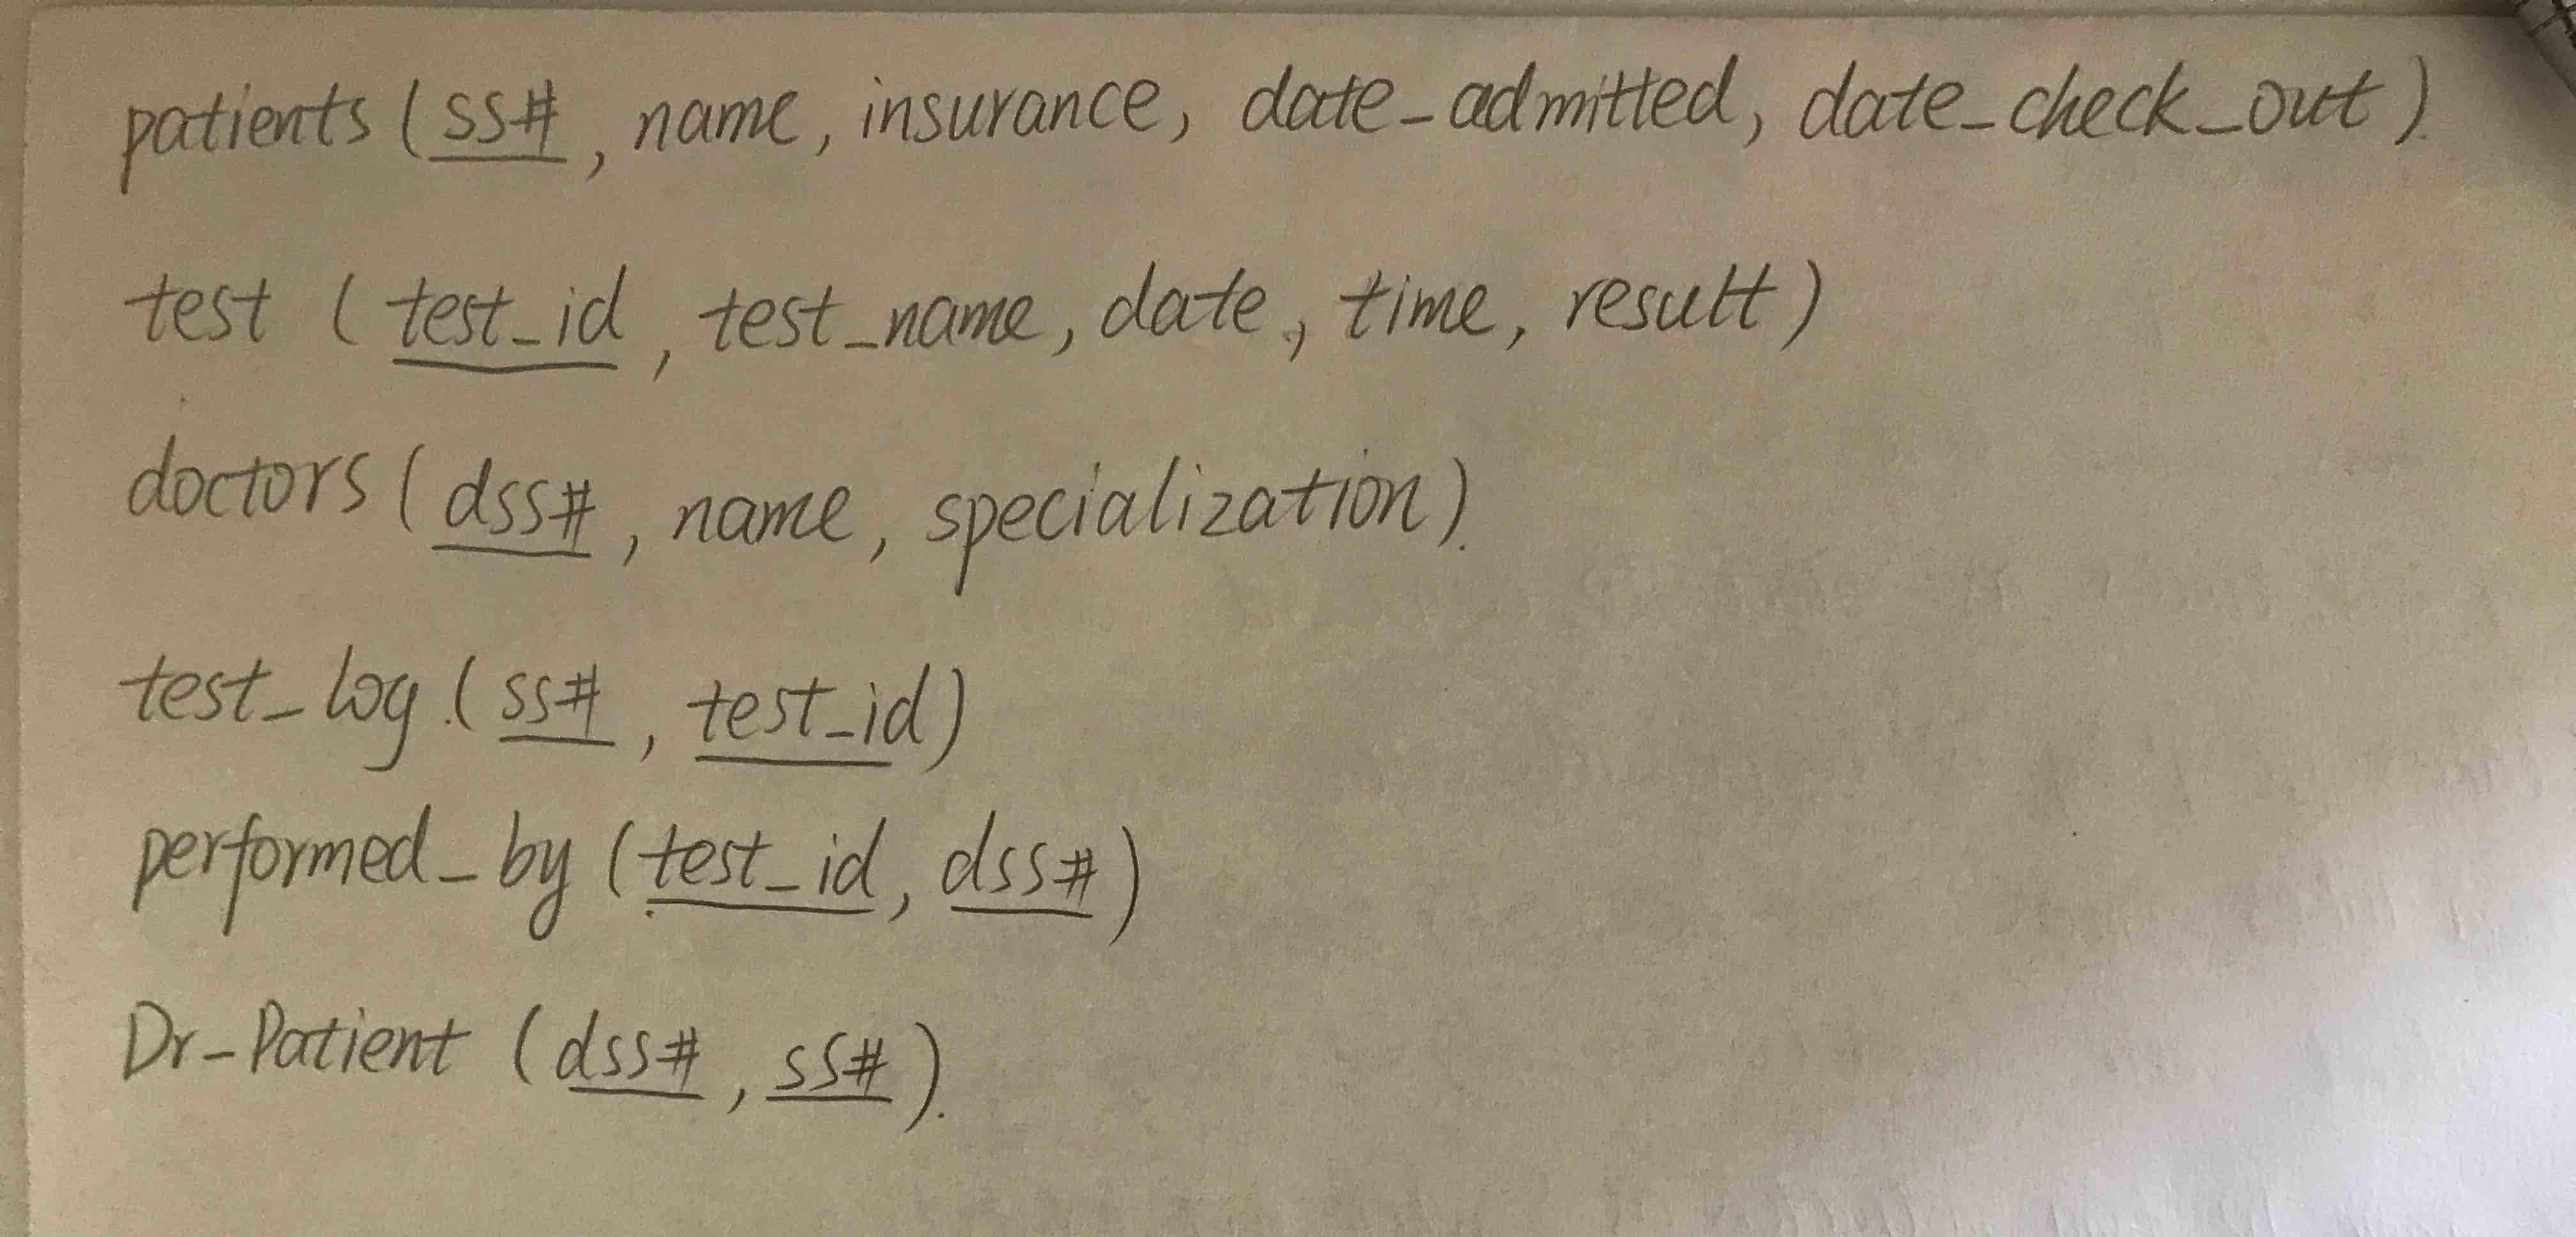 patients (ss#, name, insurance, date_admitted, date_check_out)
test (test_id, test_name, date, time, result)
doctors (dss#, name, specialization).
test_log (ss#, test_id)
performed_by (test_id, dss#)
Dr_Patient (dss#, ss#).